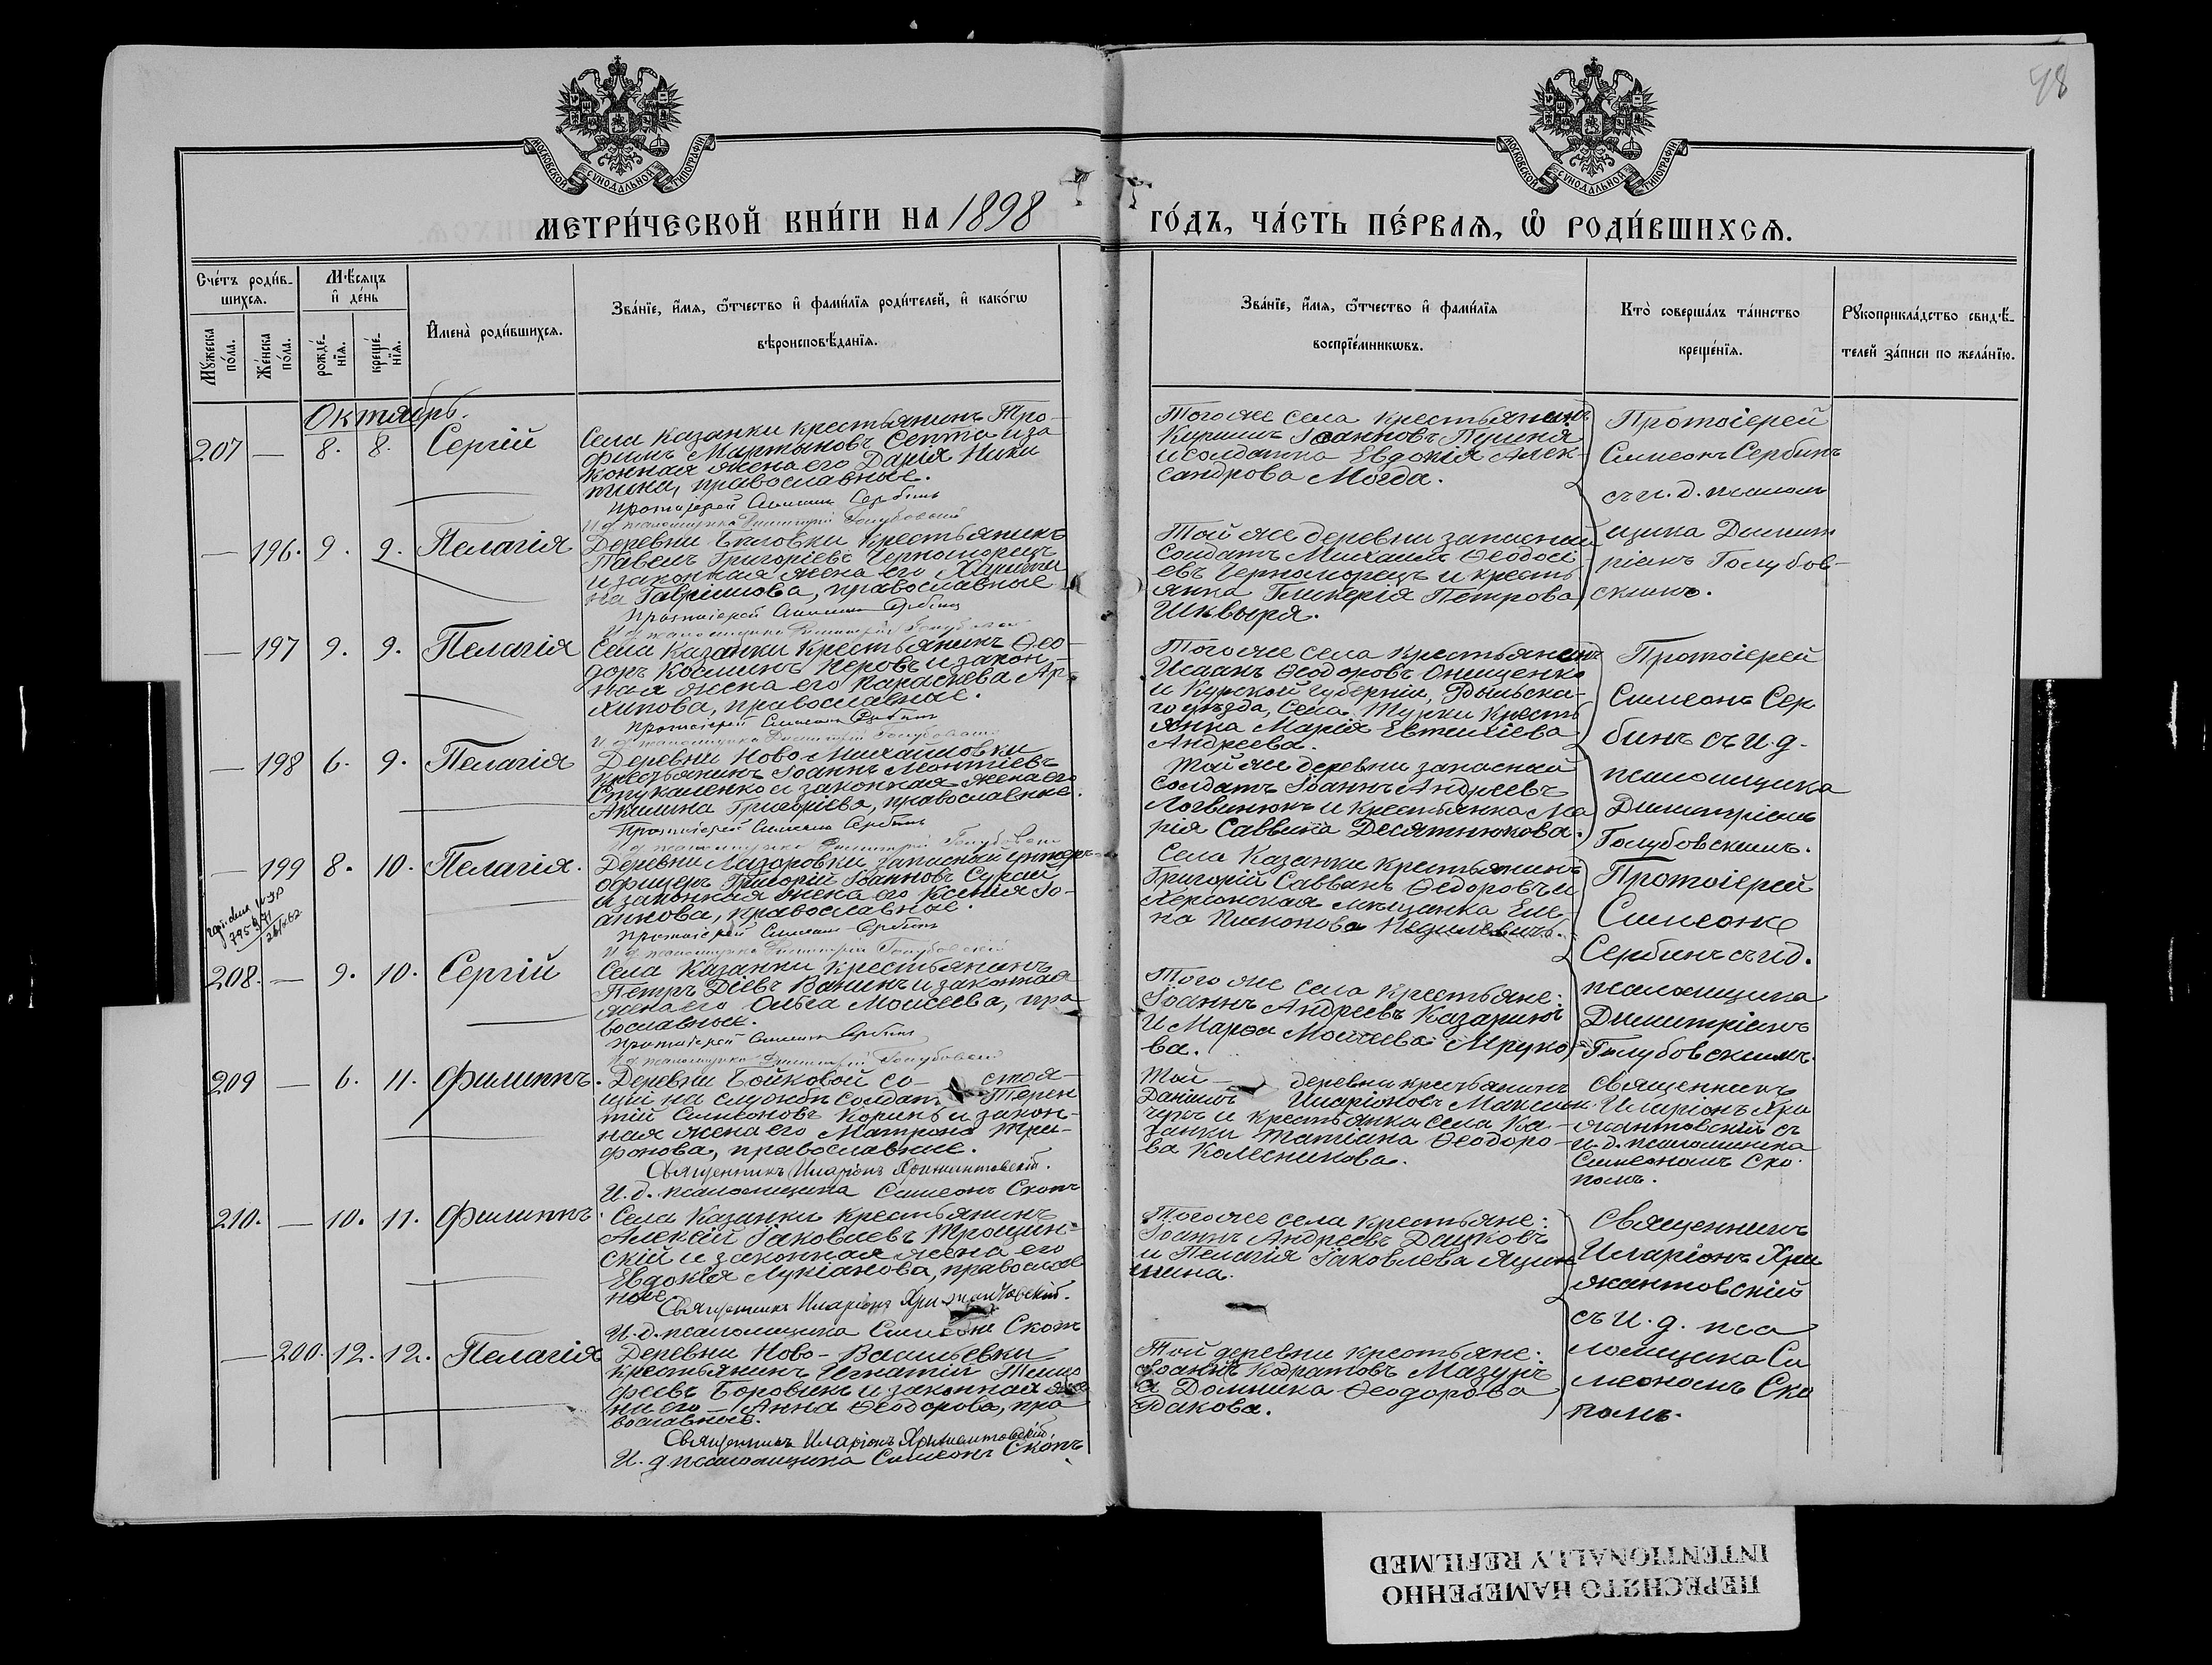 48
МОСКОВСКОЙ СѴНОДАЛЬНОЙ ТИПОГРАФІИ
МОСКОВСКОЙ СѴНОДАЛЬНОЙ ТИПОГРАФІИ
МЕТРИ́ЧЕСКОЙ КНИ́ГИ НА 1898
ГО́ДЪ, ЧА́СТЬ ПЕ́РВАЯ, Ѡ РОДИ́ВШИХСЯ.
Сче́тъ роди́в-
шихся.
Мѣсяцъ
и де́нь
Мꙋжеска
по́ла.
Же́нска
по́ла.
рожде́-
нїя.
креще́-
нїя.
Имена̀ роди́вшихся.
Зва́нїе, и́мя, ѻ́тчество и фами́лїя роди́телей, и како́гѡ
вѣроисповѣ́данїя.
Зва́нїе, и́мя, ѻ́тчество и фами́лїя
воспрїе́мникѡвъ.
Кто̀ соверша́лъ та́инство
креще́нїя.
Рꙋкоприкла́дство свидѣ́-
телей за́писи по жела́нїю.
Октябрь.
207 — 8. 8. Сергій
Села Казанки крестьянинъ Тро-
фимъ Мартыновъ Септа и за
конная жена его Дарія Ники
тина, православные.
Протоіерей Симеонъ Сербинъ
И. д. псаломщика Димитрій Голубовскій
Того же села крестьянинъ
Кириллъ Іоанновъ Пуленя
и солдатка Евдокія Алек-
сандрова Могда.
Протоіерей
Симеонъ Сербинъ
съ и. д. псалом
щика Димит
ріемъ Голубов-
скимъ.
— 196. 9. 9. Пелагія
Деревни Бѣловки крестьянинъ
Павелъ Григоріевъ Черноморецъ
и законная жена его Христи
на Гавріилова, православные
Протоіерей Симеонъ Сербинъ
И. д. псаломщика Димитрій Голубовскій
Той же деревни запасный
солдатъ Михаилъ Ѳеодосі-
евъ Черноморецъ и кресть
янка Гликерія Петрова
Шквыря.
— 197 9. 9. Пелагія
Села Казанки крестьянинъ Ѳео-
доръ Косминъ Перовъ и закон-
ная жена его Параскева Ар-
хипова, православные.
Протоіерей Симеонъ Сербинъ
И. д. псаломщика Димитрій Голубовскій
Того же села крестьянинъ
Исаакъ Ѳеодоровъ Онищенко
и Курской губерніи, Рыльска-
го уѣзда, села Турки кресть
янка Марія Евтихіева
Андреева.
Протоіерей
Симеонъ Сер
бинъ съ и. д.
псаломщика
Димитріемъ
Голубовскимъ.
— 198 6. 9. Пелагія
Деревни Ново-Михайловки
крестьянинъ Іоаннъ Леонтіевъ
Стукаленко и законная жена его
Акилина Григоріева, православные.
Протоіерей Симеонъ Сербинъ
И. д. псаломщика Димитрій Голубовскій
Той же деревни запасный
солдатъ Іоаннъ Андреевъ
Логвинюкъ и крестьянка Ма
рія Саввина Десятнюкова.
— 199 8. 10. Пелагія.
Деревни Лазоровки запасный унтеръ-
офицеръ Григорій Іоанновъ Сукай
и законная жена его Ксенія Іо-
аннова, православные.
Протоіерей Симеонъ Сербинъ
И. д. псаломщика Димитрій Голубовскій
Села Казанки крестьянинъ
Григорій Саввинъ Ѳедоровъ и
Херсонская мѣщанка Еле
на
Протоіерей
Симеонъ
Сербинъ съ и. д.
псаломщика
Димитріемъ
Голубовскимъ.
208. — 9. 10. Сергій
Села Казанки крестьянинъ
Петръ Діевъ Ванинъ и законная
жена его Ольга Моисеева, пра
вославные.
Протоіерей Симеонъ Сербинъ
И. д. псаломщика Димитрій Голубовскій
Того же села крестьяне:
Іоаннъ Андреевъ Казаринъ
и Марѳа Моисеева Мруко
ва.
209 — 6. 11. Филиппъ.
Деревни Бойковой со- стоя-
щій на службѣ солдатъ Терен
тій Симеоновъ Коринь и закон-
ная жена его Матрона Три-
фонова, православные.
Священникъ Иларіонъ Хрижантовскій.
И. д. псаломщика Симеонъ Скопъ
Той — деревни крестьянинъ
Даніилъ Иларіоновъ
и крестьянка села Ка-
занки Татіана Ѳеодоро-
ва Колесникова.
Священникъ
Иларіонъ Хри
жантовскій съ
и. д. псаломщика
Симеономъ Ско
помъ.
210. — 10. 11. Филиппъ.
Села Казанки крестьянинъ
Алексій Іаковлевъ Трощин-
скій и законная жена его
Евдокія Лукіанова, православ
ные
Священникъ Иларіонъ Хрижантовскій.
И. д. псаломщика Симеонъ Скопъ
Того же села крестьяне:
Іоаннъ Андреевъ Дацковъ
и Пелагія Іаковлева
Священникъ
Иларіонъ Хри
жантовскій
съ и. д. пса
ломщика Си
меономъ Ско
помъ.
— 200. 12. 12. Пелагія
Деревни Ново-Васильевки
крестьянинъ Игнатій Тимо
феевъ Боровикъ и законная же
на его — Анна Ѳеодорова, пра
вославные.
Священникъ Иларіонъ Хрижантовскій.
И. д. псаломщика Симеонъ Скопъ
Той деревни крестьяне:
Іоаннъ Кодратовъ Мазуръ
и Домника Ѳеодорова
Дакова.
ПЕРЕСНЯТО НАМЕРЕННО
INTENTIONALLY REFILMED